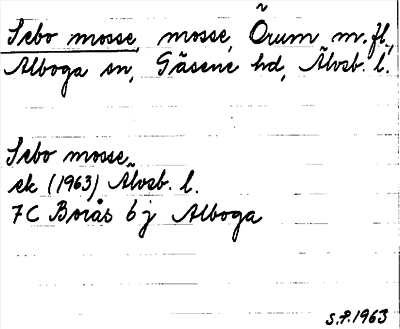 Sebo mosse, mosse, Örum m.fl.,
Alboga sn, Gäsene hd, Älvsb. l.
Sebo mosse
ek (1963) Älvsb. l.
7C Borås 6 j Alboga
S.P. 1963